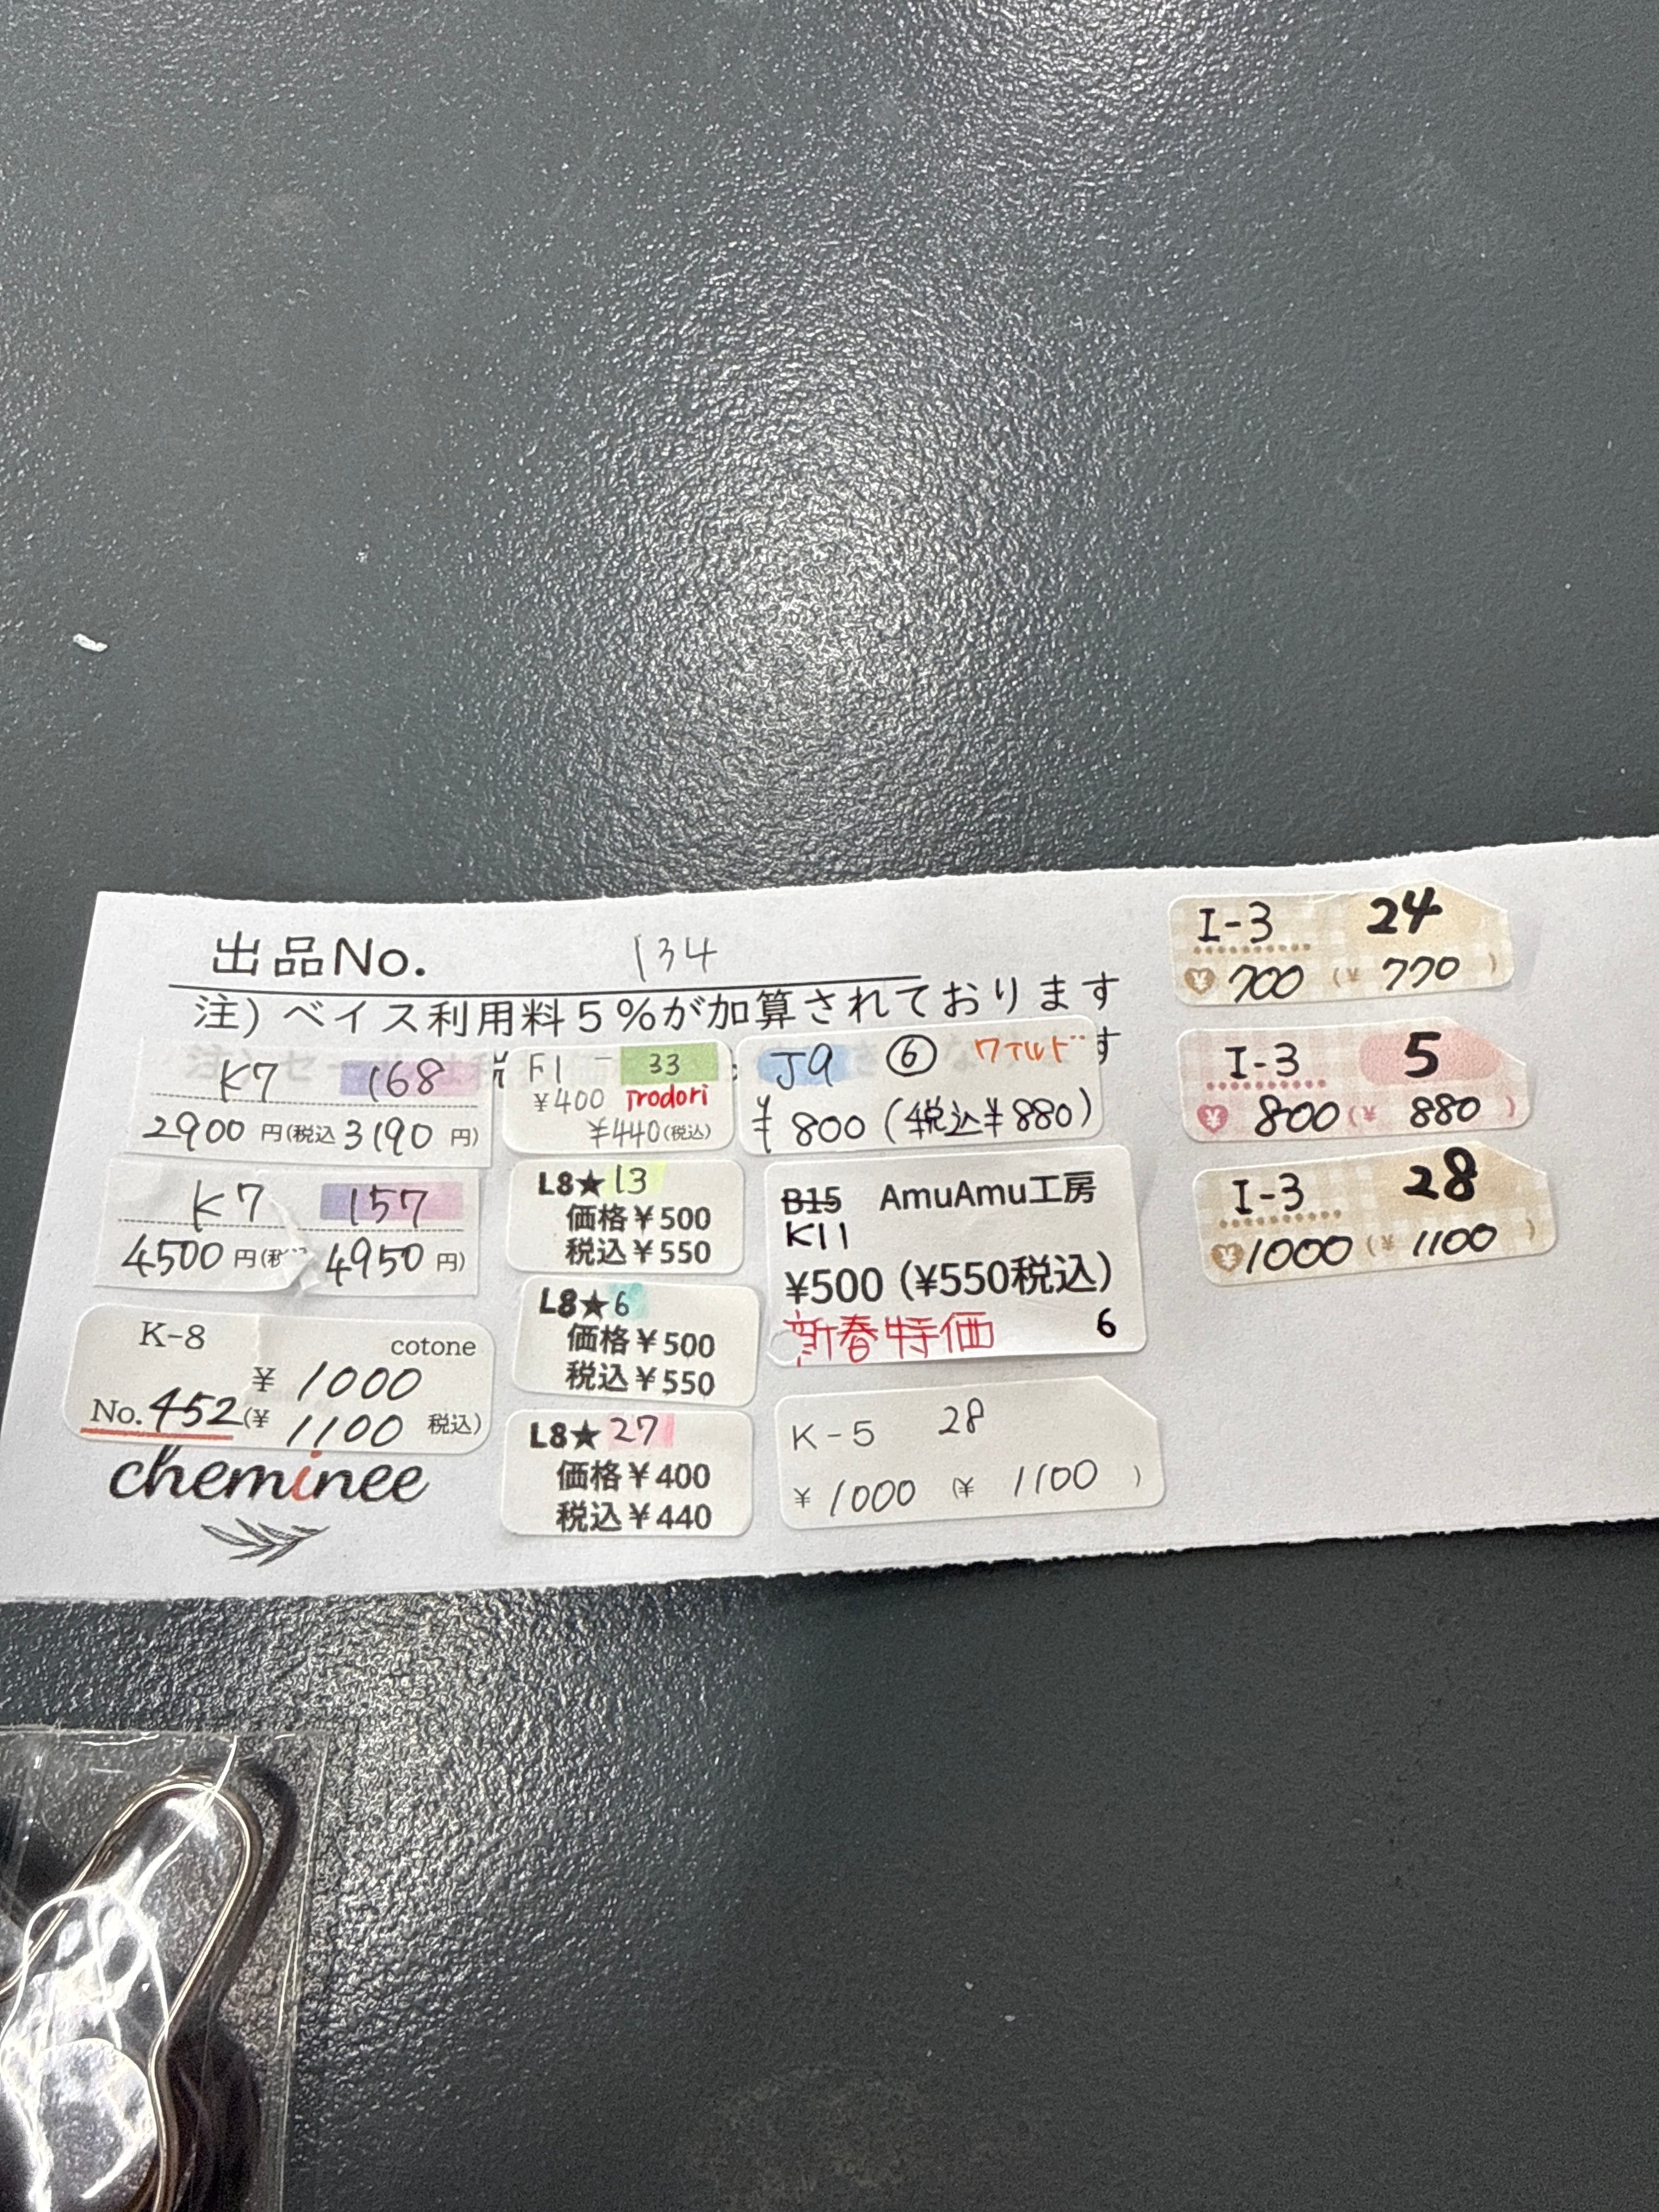 出品No. 134
注) ベイス利用料5%が加算されております
す
K7 168
2900 円(税込 3190 円)
K7 157
4500 円( 4950 円)
K-8 cotone
¥ 1000
No. 452 (¥ 1100 税込)
cheminee
F1 33
¥400
¥440(税込)
L8★13
価格¥500
税込¥550
L8★6
価格¥500
税込¥550
L8★27
価格¥400
税込¥440
J9 ⑥ ワイルド
¥ 800 (税込¥880)
B15 AmuAmu工房
K11
¥500 (¥550税込)
新春特価 6
K-5 28
¥ 1000 (¥ 1100 )
I-3 24
¥ 700 (¥ 770 )
I-3 5
¥ 800 (¥ 880 )
I-3 28
¥ 1000 (¥ 1100 )